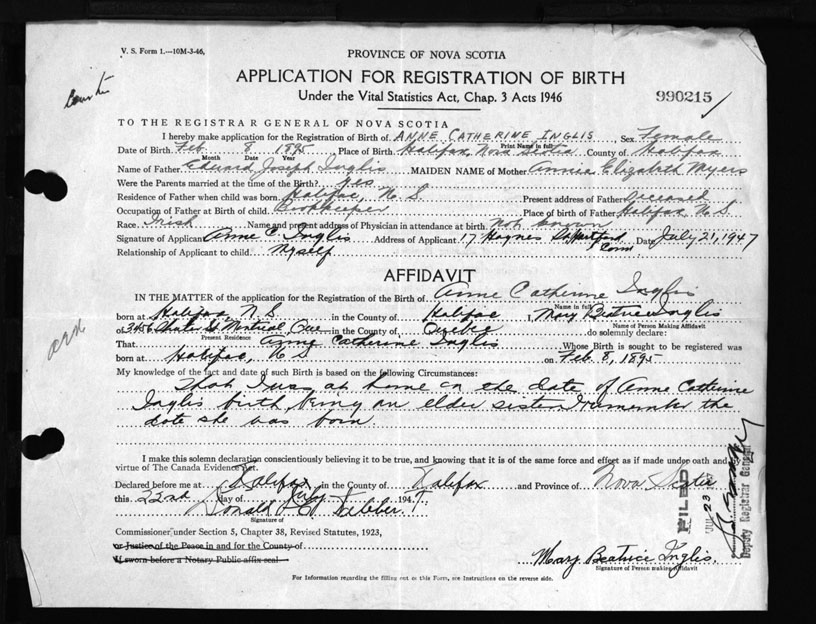 V. S. Form 1.—10M-3-46,
PROVINCE OF NOVA SCOTIA
APPLICATION FOR REGISTRATION OF BIRTH
Under the Vital Statistics Act, Chap. 3 Acts 1946
990215
TO THE REGISTRAR GENERAL OF NOVA SCOTIA
I hereby make application for the Registration of Birth of ANNE CATHERINE INGLIS Sex Female
Print Name in full
Date of Birth Feb 8 1895 Place of Birth Halifax, Nova Scotia County of Halifax
Month Date Year
Name of Father Edward Joseph Inglis MAIDEN NAME of Mother Annie Elizabeth Myers
Were the Parents married at the time of the Birth? yes
Residence of Father when child was born Halifax, N. S. Present address of Father Deceased
Occupation of Father at Birth of child Bookkeeper Place of birth of Father Halifax N.S.
Race Irish Name and present address of Physician in attendance at birth not known
Signature of Applicant Anne C. Inglis Address of Applicant 17 Haynes St Hartford Conn Date July 21, 1947
Relationship of Applicant to child Myself
AFFIDAVIT
IN THE MATTER of the application for the Registration of the Birth of Anne Catherine Inglis
Name in full
born at Halifax, N.S. in the County of Halifax I, Mary Beatrice Inglis
Name of Person Making Affidavit
of 3456 St Montreal, Que in the County of Quebec do solemnly declare:
Present Residence
That Anne Catherine Inglis Whose Birth is sought to be registered was
born at Halifax, N S on Feb. 8, 1895
My knowledge of the fact and date of such Birth is based on the following Circumstances:
That I was at home on the date of Anne Catherine
Inglis birth, being an elder sister I remember the
date she was born.
I make this solemn declaration conscientiously believing it to be true, and knowing that it is of the same force and effect as if made under oath and by
virtue of The Canada Evidence Act.
Declared before me at Halifax in the County of Halifax and Province of Nova Scotia
this 22nd day of July 1947
Donald
Signature of
Commissioner under Section 5, Chapter 38, Revised Statutes, 1923,
or Justice of the Peace in and for the County of
If sworn before a Notary Public affix seal
Mary Beatrice Inglis
Signature of Person making Affidavit
FILED
JUL 23
Deputy Registrar General
For Information regarding the filling out of this Form, see Instructions on the reverse side.